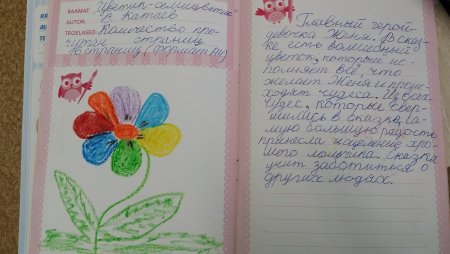 RAAMAT: "Цветик-семицветик"
AUTOR: В. Катаев
TEGELASED: Количество про-
читан страниц
страниц (формат А4)
Главный герой
девочка Женя. В сказ-
ке есть волшебный
цветок, который ис-
полняет всё, что
желает Женя и проис-
ходят чудеса. Из всех
чудес, которые свер-
шились в сказке, са-
мую большую радость
принесла исцеление хро-
мого мальчика. Сказка
учит заботиться о
других людях.